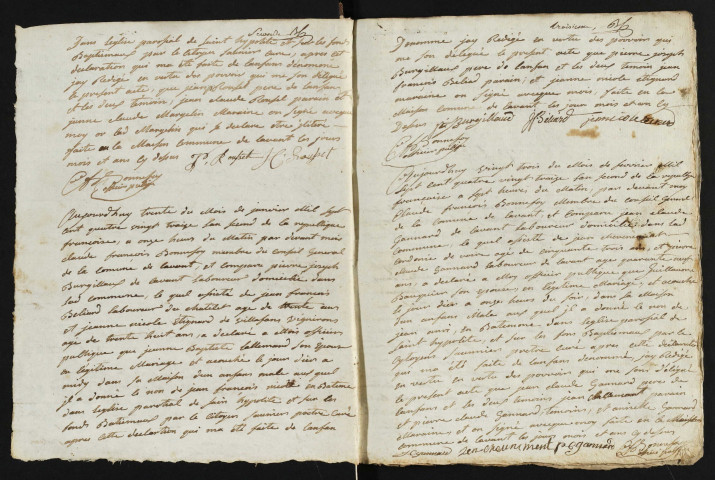 Seconde
Dans leglise paroissial de saint hypolite et sur les fonds
Baptismaux par le Citoyen Saunier Cure, apres cette
declaration qui ma été faite de lanfan denomé
jay Rédigé en vertu des pouvoir qui me son deléguè
le present acte, que jean Rouset pere de lanfan
et les deux temoin, jean claude Rouset parain et
jeane claude Marguin Maraine on signé avecque
moy or lad Marguin qui a declare etre illitere
faite en la Maison Commune de lavant les jours
mois et ans cy desus Jp Rouset J C Rouset
Bonnefoy
officier publique
Aujourdhuy trente du Mois de janvier Mil sept
cent quatre vingt treize lan second de la republique
francoise, a onze heures du Matin par devant mois
claude francois Bonnefoy membre du conseil General
de la comune de lavant, et comparu pierre joseph
Burgillaux de lavant laboureur domicilié dans
lad commune, le quel assisté de jean francois
Beliard laboureur du chatelet age de trente ans
et jeanne nicole Etignard de Salefans vigneron
age de trente huit ans, a declaré a Mois officier
publique que jeanne Baptiste lallemand son Epouse
en legitime Mariage et acouché le jour dier a
midy dans sa Maison dun anfans male auquel
jl a donné le non de jean francois en Bateme
dans leglise paroissial de sain hypolite et sur les
fonds Batismaux par le Citoyen saunier prètre Curé
apres cette déclaration qui ma été faite de lanfan
troisieme
Denomme jay Redigé en vertu des pouvoirs qui
me son delegué le present acte que pierre joseph
Burgillaux pere de lanfan et les deux temoin jean
francois Beliard parain; et jeanne nicole etignard
maraine on signé avecque moi. faite en la
Maison comune de lavant les jour mois et an cy
desus pj Burgillaud Jf Béliard
Bonnefoy
officier publique
Aujourdhuy vingt trois du Mois de fevrier Mil
sept cent quatre vingt treize lan second de la republique
francaise a sept heures du Matin, par devant moy
Claude francois Bonnefoy Membre du conseil General
de la Comune de lavant, et Comparu jean claude
Gannard de lavant laboureur domicilié dans lad
Commune, le quel assisté de jean
cordonie de vore age de cinquante trois ans, et pierre
claude Gannard laboureur de lavant ages quarente neuf
ans, a declaré a Moy officier publique que Guillaumine
Bauquier son epouse, en legitime Mariage, et acouché
le jour dier a onze heures du soir, dans sa Maison
dun anfans Male aux quel jl a donné le non de
jean en Bateme, dans leglise paroissial de
saint hypolite, et sur les fons Baptismaux par le
Citoyens Saunnier prètre curé apres cette déclaration
qui ma été faite de lanfans denommé jay Redigé
en vertu en vertu des pouvoirs qui me sons delegué
le present acte que jean claude Gannard pere de
lanfans et les deux temoins jean parain
et pierre claude Gannard temoins; et Gannard
Maraine on signé avecque moy faite en la Maison
Commune de lavant les jour mois et ans cy desus
Gannard pc ganard Bonnefoy
officier publique